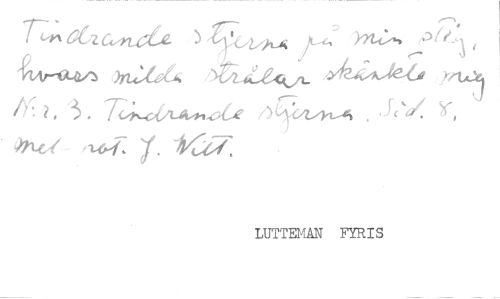 Tindrande stjerna på min stig,
hvars milda strålar skänkte mig
N:r. 3. Tindrande stjerna. Sid. 8.
mel- not. J. Witt.
LUTTEMAN FYRIS